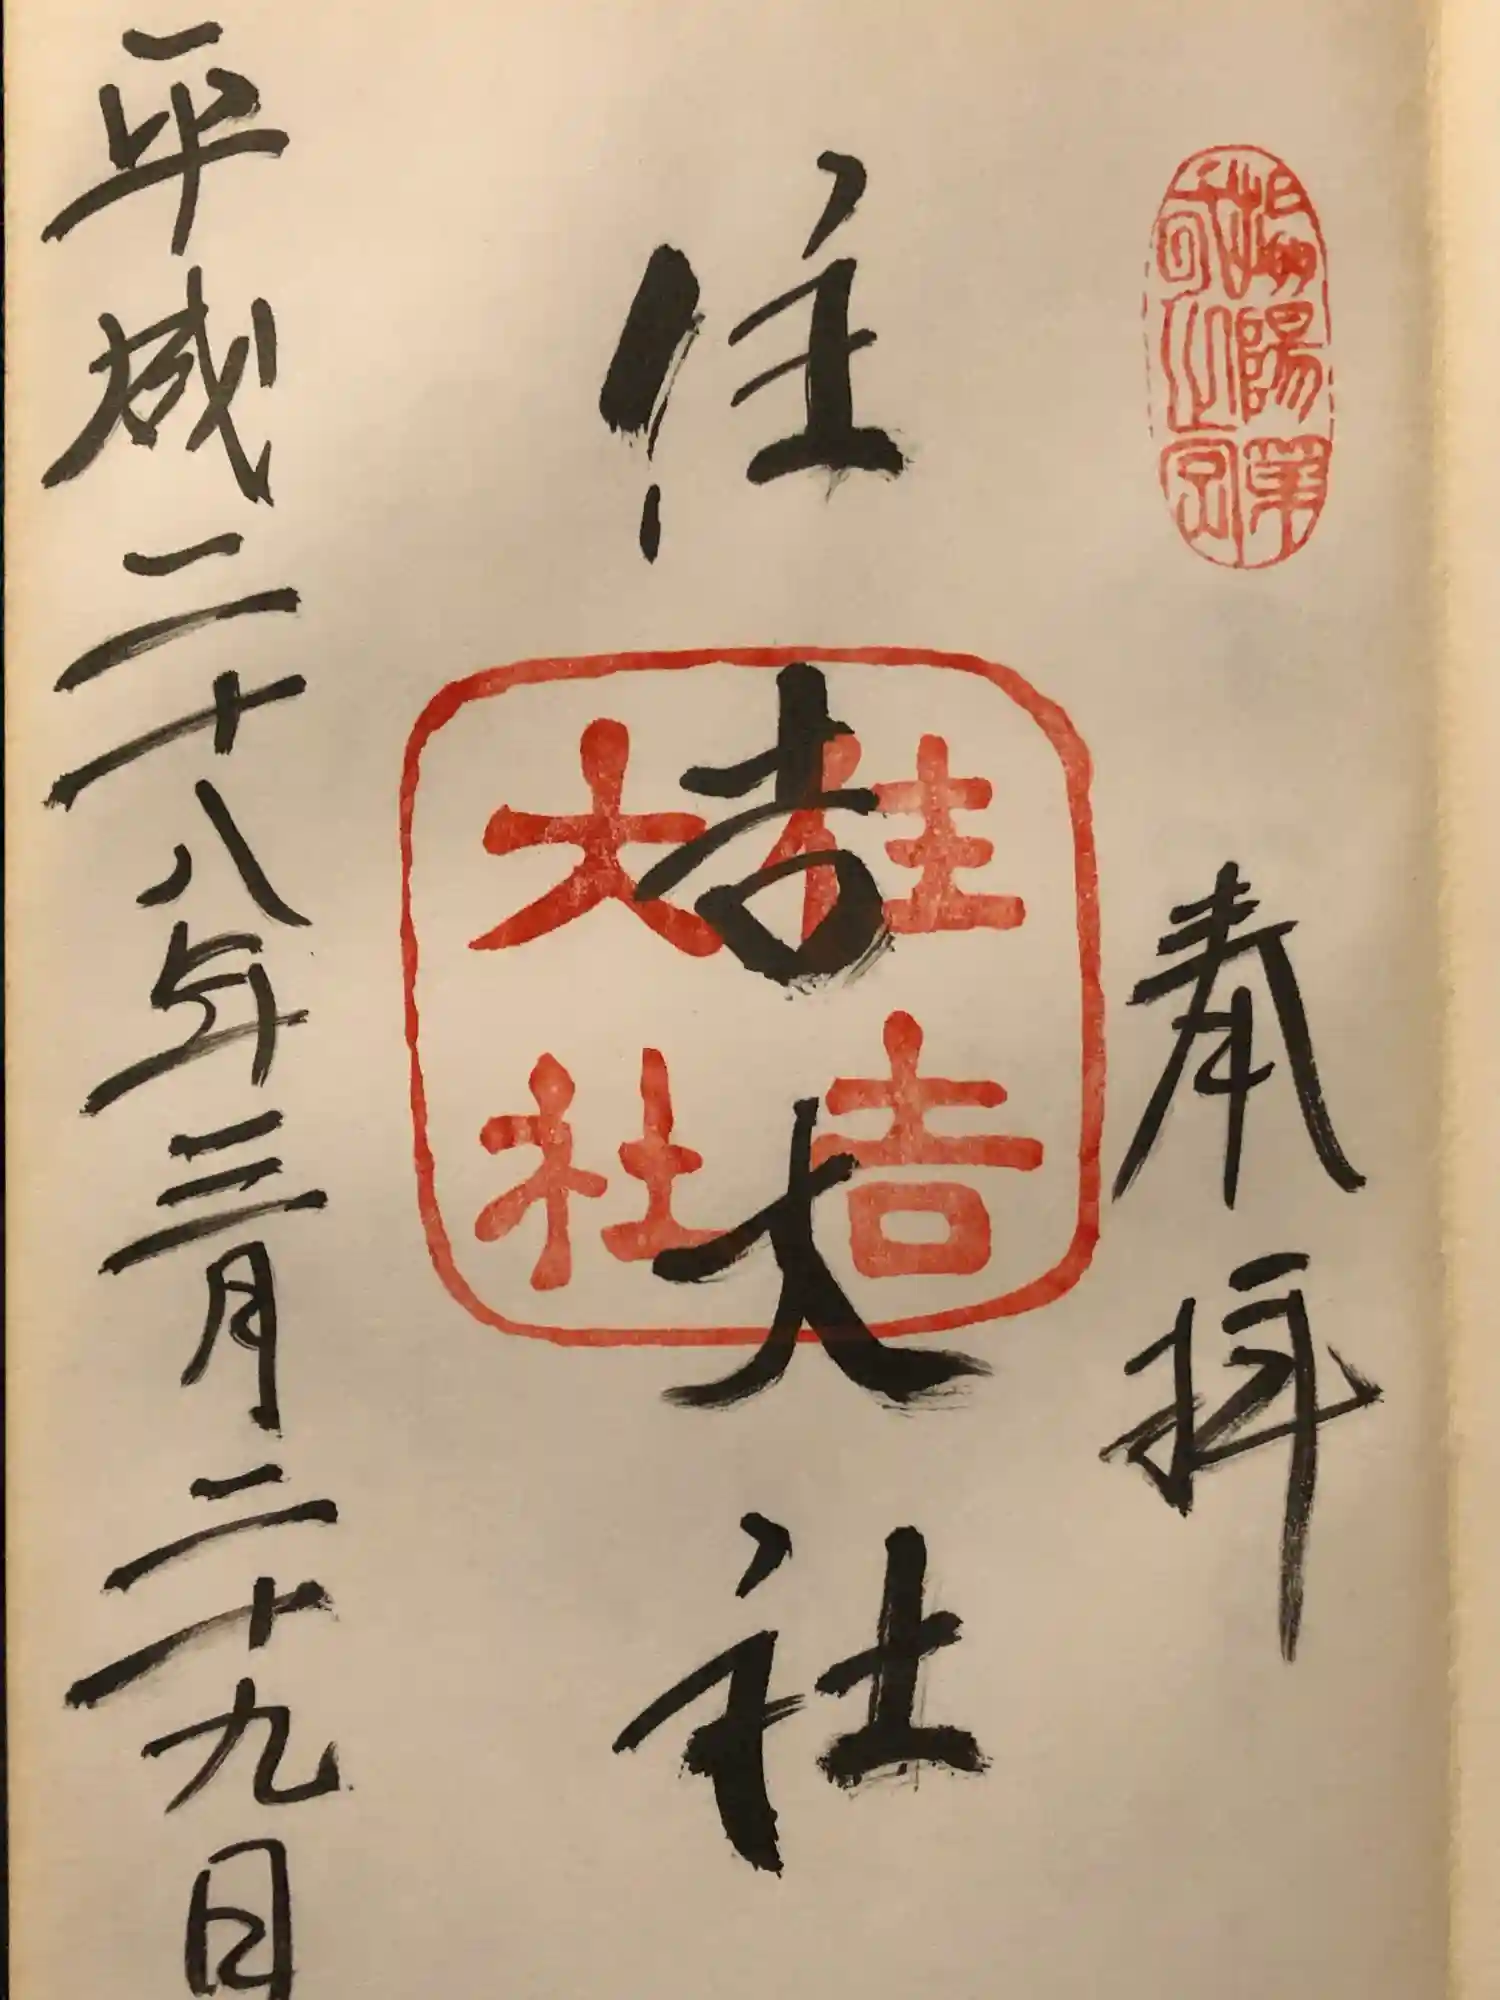 摂陽第
之宮
奉拝
住吉大社
住吉
大社
平成二十八年三月二十九日